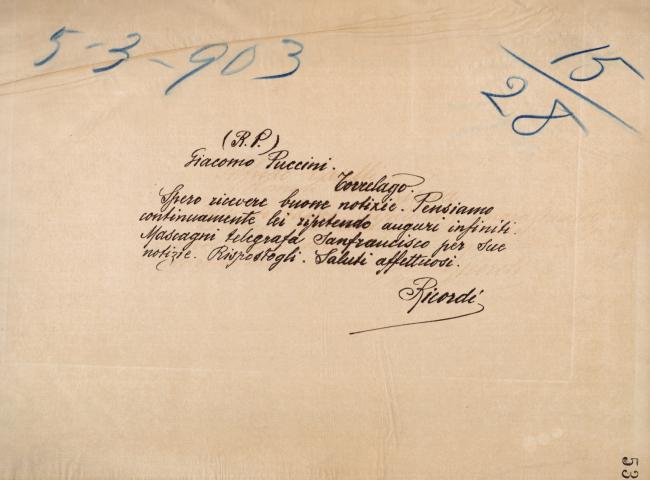 5-3-903
15
28
(R.P.)
Giacomo Puccini.
Torrelago.
Spero ricevere buone notizie. Pensiamo
continuamente lei ripetendo auguri infiniti.
Mascagni telegrafa Sanfrancisco per sue
notizie. Rispostogli. Saluti affettuosi.
Ricordi
53